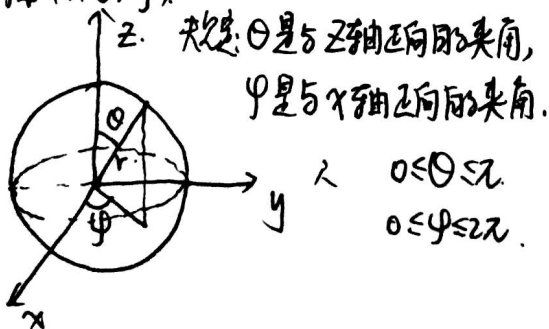 z. 规定:θ是与z轴正向的夹角,
φ是与x轴正向的夹角.
θ
r
0≤θ≤π.
y
φ
0≤φ≤2π.
x